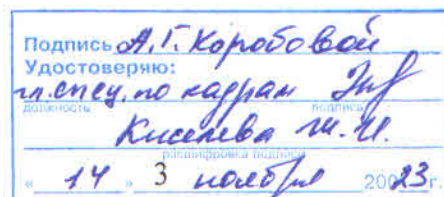 Подпись А.Г. Коробовой
Удостоверяю:
гл. спец. по кадрам
должность подпись
Киселева
расшифровка подписи
« 14 » 3 ноября 20023 г.